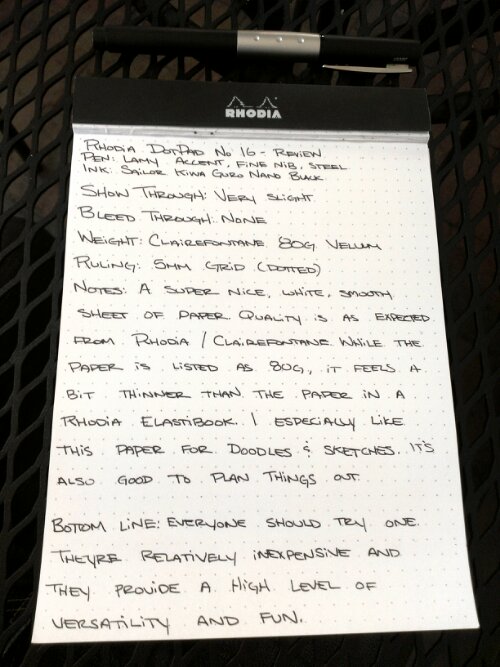 RHODIA
RHODIA DOTPAD NO 16 - REVIEW
PEN: LAMY ACCENT, FINE NIB, STEEL
INK: SAILOR KIWA GURO NANO BLACK
SHOW THROUGH: VERY SLIGHT
BLEED THROUGH: NONE
WEIGHT: CLAIREFONTANE 80G VELLUM
RULING: 5MM GRID (DOTTED)
NOTES: A SUPER NICE, WHITE, SMOOTH
SHEET OF PAPER. QUALITY IS AS EXPECTED
FROM RHODIA / CLAIREFONTANE. WHILE THE
PAPER IS LISTED AS 80G, IT FEELS A
BIT THINNER THAN THE PAPER IN A
RHODIA ELASTIBOOK. I ESPECIALLY LIKE
THIS PAPER FOR DOODLES & SKETCHES. IT'S
ALSO GOOD TO PLAN THINGS OUT.
BOTOM LINE: EVERYONE SHOULD TRY ONE.
THEY'RE RELATIVELY INEXPENSIVE AND
THEY PROVIDE A HIGH LEVEL OF
VERSATILITY AND FUN.